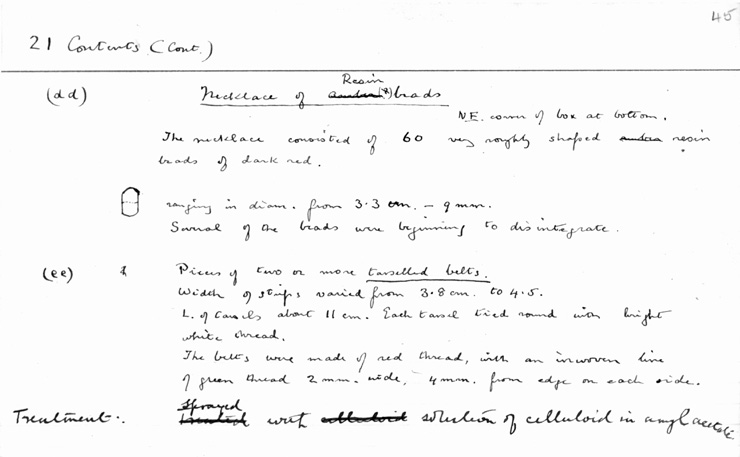 45
21 Contents (Cont.)
(dd) Necklace of amber Resin (?) beads
N.E. corner of box at bottom.
The necklace consisted of 60 very roughly shaped amber resin
beads of dark red.
ranging in diam. from 3.3 cm. – 9 mm.
Several of the beads were beginning to disintegrate.
(ee) Pieces of two or more tasselled belts.
Width of strips varied from 3.8 cm. to 4.5.
L. of tassels about 11 cm. Each tassel tied round with bright
white thread.
The belts were made of red thread, with an inwoven line
of green thread 2 mm. wide, 4 mm. from edge on each side.
Treatment:. treated Sprayed with celluloid solution of celluloid in amyl acetate